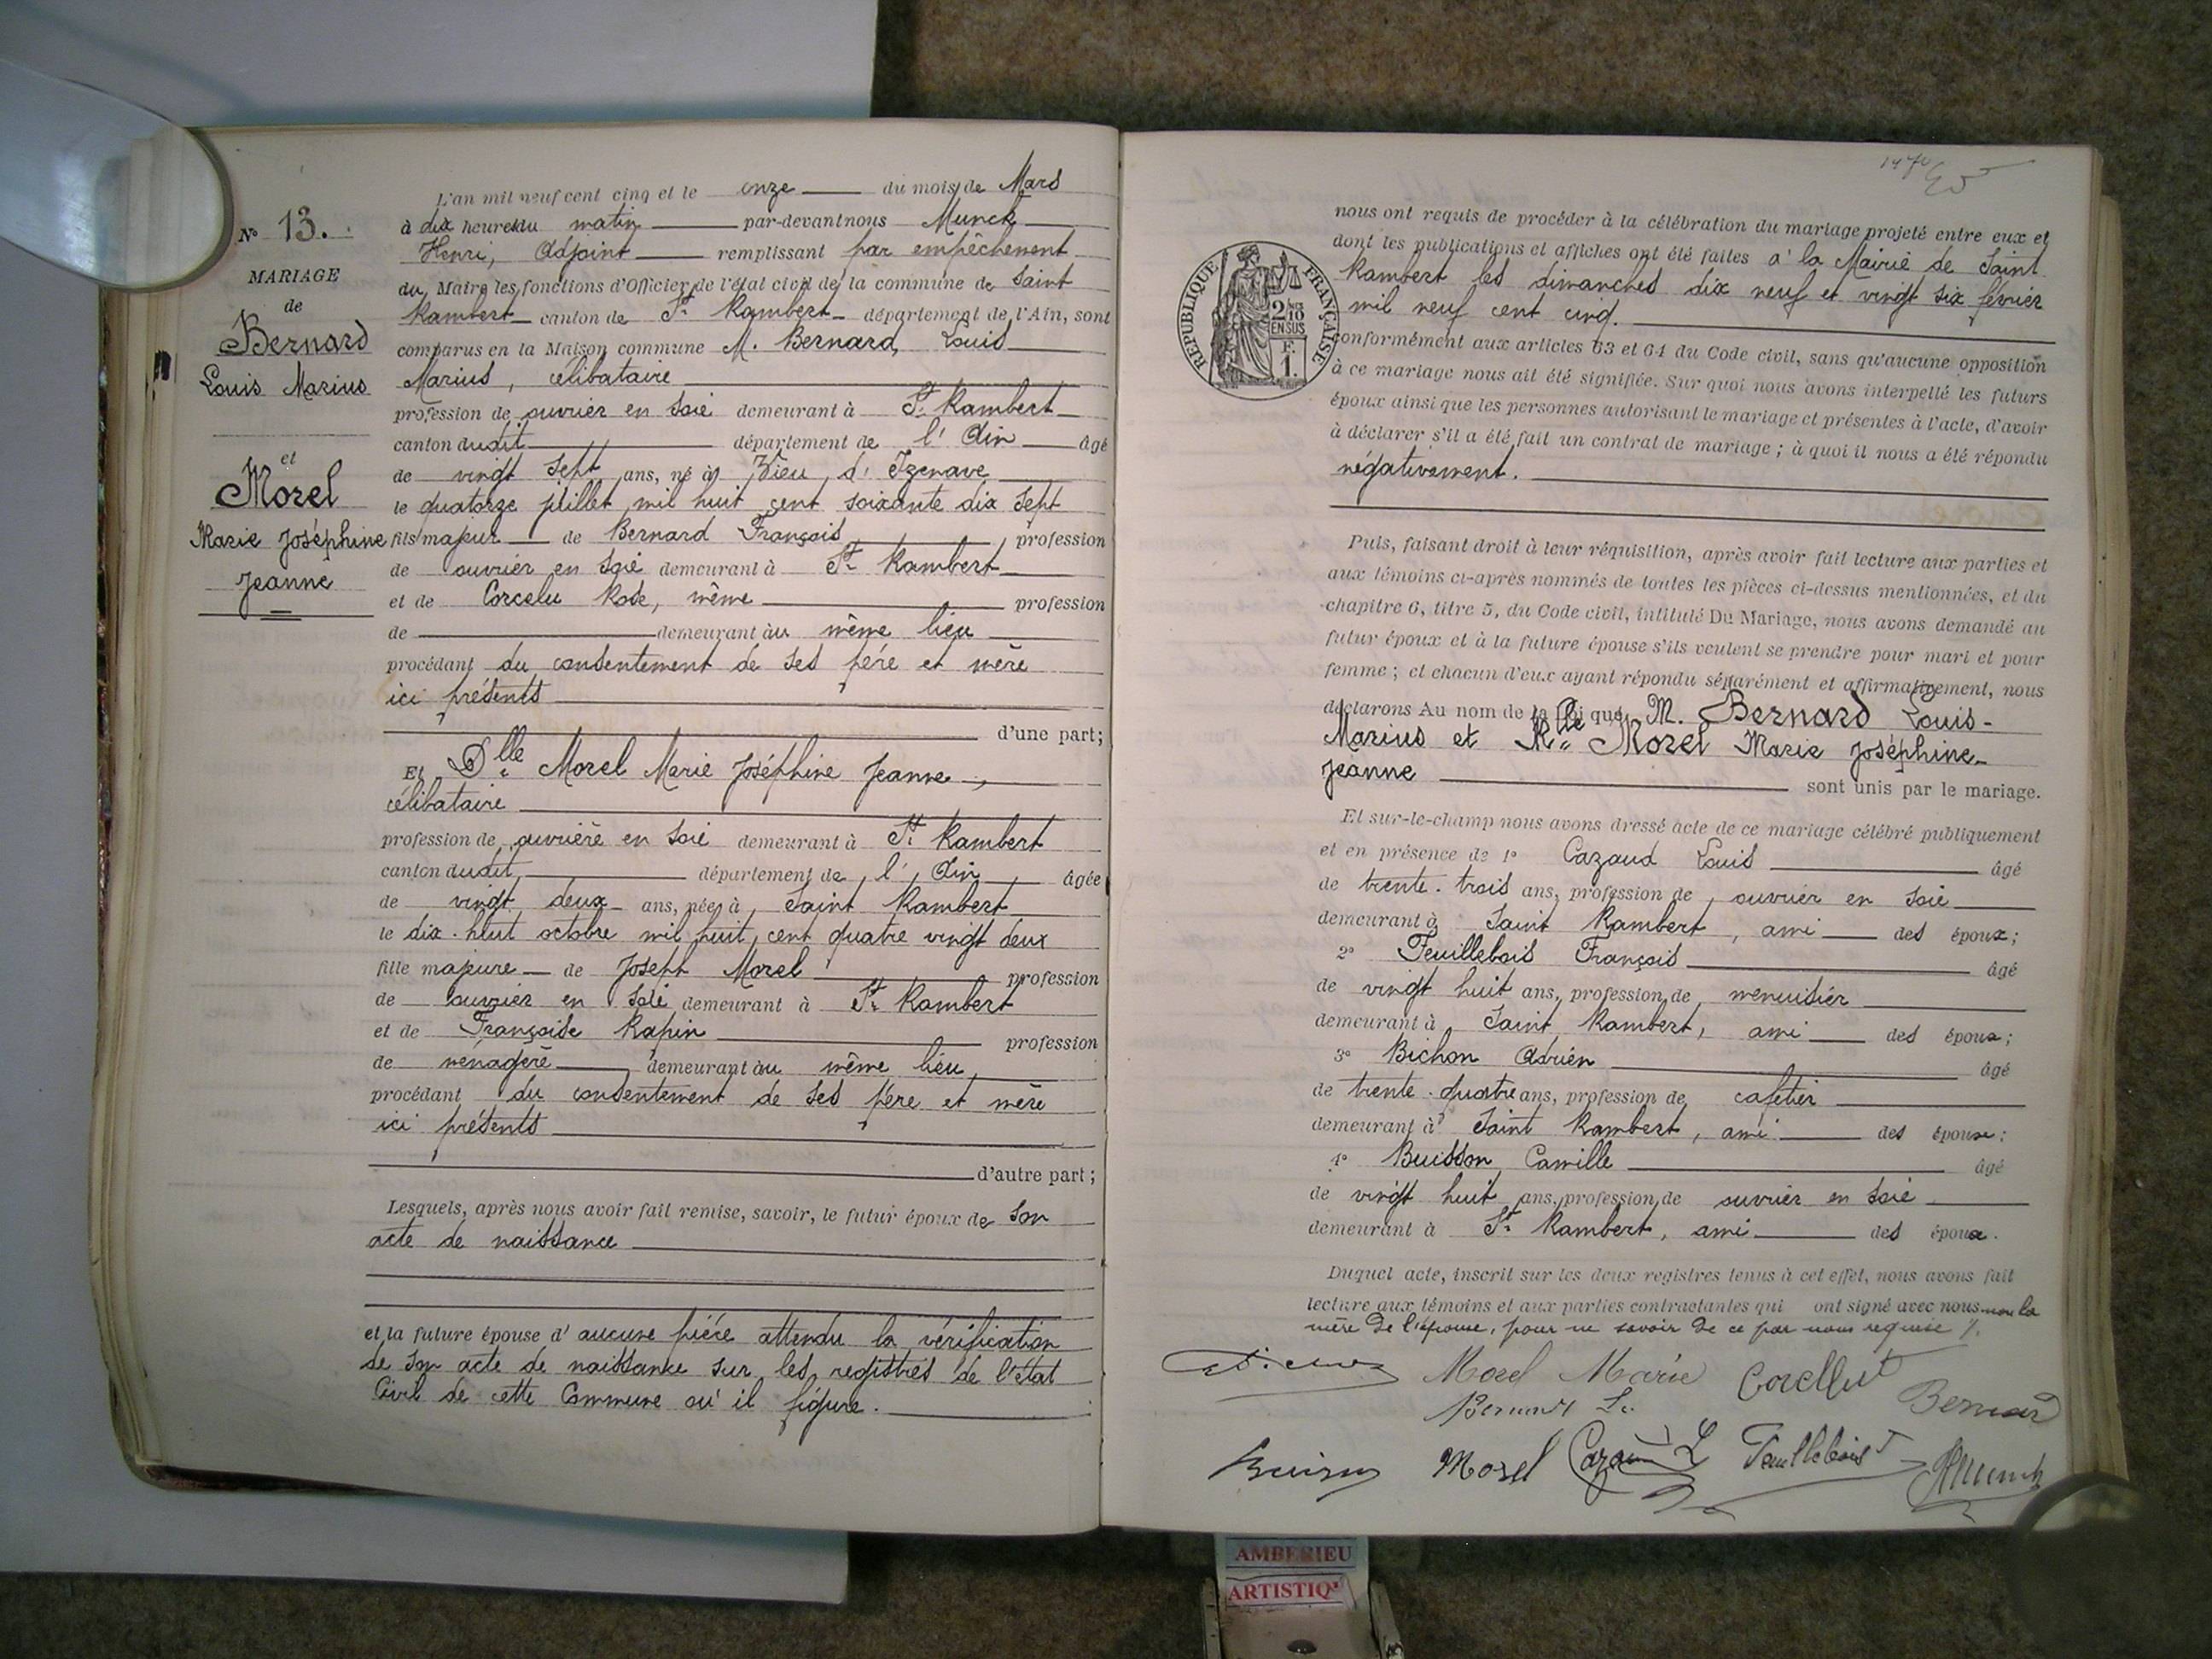 N° 13.
MARIAGE
de
Bernard
Louis Marius
et
Morel
Marie Joséphine
Jeanne
L'an mil neuf cent cinq et le onze du mois de Mars
à dix heures du matin par-devant nous Munck
Henri, Adjoint remplissant par empêchement
du Maire les fonctions d'Officier de l'état civil de la commune de Saint
Rambert canton de St Rambert département de l'Ain, sont
comparus en la Maison commune M. Bernard, Louis
Marius, célibataire
profession de ouvrier en soie demeurant à St Rambert
canton dudit département de l'Ain âgé
de vingt sept ans, né à Vieu d'Izenave
le quatorze juillet mil huit cent soixante dix sept
fils majeur de Bernard François profession
de ouvrier en soie demeurant à St Rambert
et de Corcelu Rose, même profession
de demeurant au même lieu
procédant du consentement de ses père et mère
ici présents
d'une part;
Et Dlle Morel Marie Joséphine Jeanne,
célibataire
profession de ouvrière en soie demeurant à St Rambert
canton dudit département de l'Ain âgée
de vingt deux ans, née à Saint Rambert
le dix-huit octobre mil huit cent quatre vingt deux
fille majeure de Joseph Morel profession
de ouvrier en soie demeurant à St Rambert
et de Françoise Rapin profession
de ménagère demeurant au même lieu,
procédant du consentement de ses père et mère
ici présents
d'autre part;
Lesquels, après nous avoir fait remise, savoir, le futur époux de son
acte de naissance
et la future épouse d'aucune pièce attendu la vérification
de son acte de naissance sur les registres de l'état
Civil de cette Commune où il figure.
RÉPUBLIQUE FRANÇAISE
2/10
EN SUS
F.
1.
nous ont requis de procéder à la célébration du mariage projeté entre eux et
dont les publications et affiches ont été faites à la Mairie de Saint
Rambert les dimanches dix neuf et vingt six février
mil neuf cent cinq.
conformément aux articles 63 et 64 du Code civil, sans qu'aucune opposition
à ce mariage nous ait été signifiée. Sur quoi nous avons interpellé les futurs
époux ainsi que les personnes autorisant le mariage et présentes à l'acte, d'avoir
à déclarer s'il a été fait un contrat de mariage; à quoi il nous a été répondu
négativement.
Puis, faisant droit à leur réquisition, après avoir fait lecture aux parties et
aux témoins ci-après nommés de toutes les pièces ci-dessus mentionnées, et du
chapitre 6, titre 5, du Code civil, intitulé Du Mariage, nous avons demandé au
futur époux et à la future épouse s'ils veulent se prendre pour mari et pour
femme; et chacun d'eux ayant répondu séparément et affirmativement, nous
déclarons Au nom de la loi que M. Bernard Louis-
Marius et Mlle Morel Marie Joséphine-
Jeanne sont unis par le mariage.
Et sur-le-champ nous avons dressé acte de ce mariage célébré publiquement
et en présence de 1° Cazaud Louis âgé
de trente-trois ans, profession de ouvrier en soie
demeurant à Saint Rambert, ami des époux;
2° Feuillebois François âgé
de vingt huit ans, profession de menuisier
demeurant à Saint Rambert, ami des époux;
3° Bichon Adrien âgé
de trente-quatre ans, profession de cafetier
demeurant à Saint Rambert, ami des époux;
4° Buisson Camille âgé
de vingt huit ans, profession de ouvrier en soie
demeurant à St Rambert, ami des époux.
Duquel acte, inscrit sur les deux registres tenus à cet effet, nous avons fait
lecture aux témoins et aux parties contractantes qui ont signé avec nous non la
mère de l'épouse, pour ne savoir de ce par nous requise
Morel Marie
Bernard L.
Bernard
Morel Cazaud L Feuillebois
AMBERIEU
ARTISTIQ